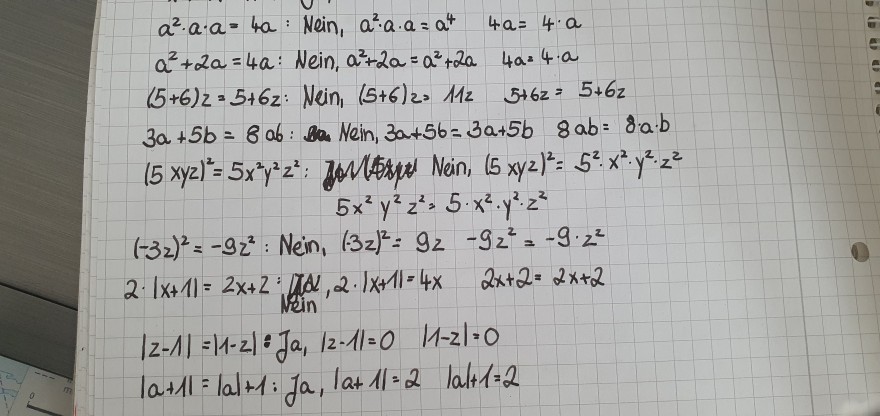 a²·a·a = 4a : Nein, a²·a·a = a⁴ 4a = 4·a
a²+2a = 4a : Nein, a²+2a = a²+2a 4a = 4·a
(5+6)z = 5+6z : Nein, (5+6)z = 11z 5+6z = 5+6z
3a+5b = 8ab : Nein, 3a+5b = 3a+5b 8ab = 8·a·b
(5xyz)² = 5x²y²z² : Nein, (5xyz)² = 5²·x²·y²·z²
5x²y²z² = 5·x²·y²·z²
(-3z)² = -9z² : Nein, (-3z)² = 9z -9z² = -9·z²
2·|x+1| = 2x+2 : , 2·|x+1| = 4x 2x+2 = 2x+2
Nein
|z-1| = |1-z| : Ja, |z-1| = 0 |1-z| = 0
|a+1| = |a|+1 : Ja, |a+1| = 2 |a|+1 = 2